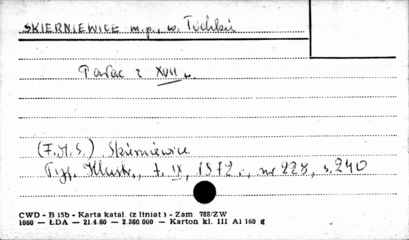 SKIERNIEWICE m.p., w. Łódzkie
Pałac z XVII w.
(F.M.S.) Skierniewice
Tyg. Illustr., t. IX, 1872., nr 228, s. 240
CWD - B 15b - Karta katal (z liniat) - Zam 788/ZW
1060 — ŁDA — 21.4.60 — 2.360.000 — Karton kl. III A1 160 g